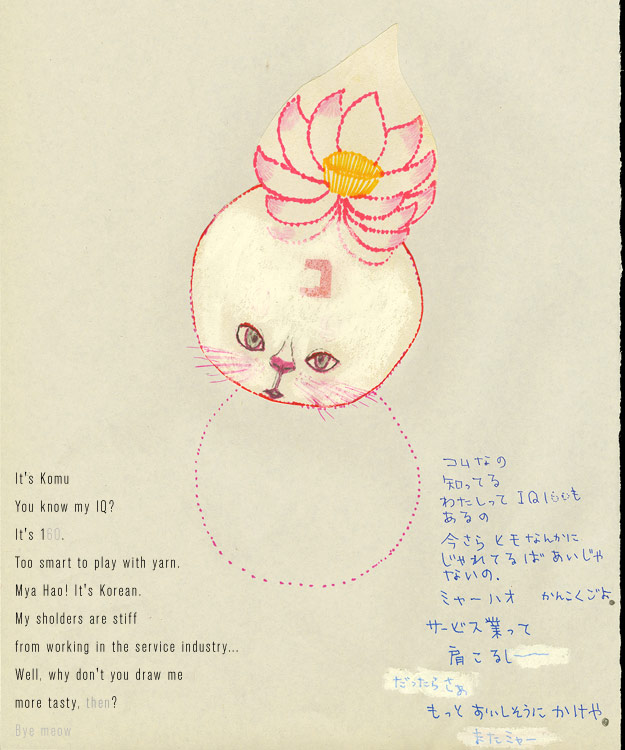 コ
It's Komu
You know my IQ?
It's 160.
Too smart to play with yarn.
Mya Hao! It's Korean.
My sholders are stiff
from working in the service industry...
Well, why don't you draw me
more tasty, then?
Bye meow
コムなの
知ってる
わたしって IQ160も
あるの
今さら ヒモなんかに
じゃれてるばあいじゃ
ないの.
ミャーハオ かんこくごよ
サービス業って
肩こるしー
だったらさぁ
もっと おいしそうに かけや
またミャー